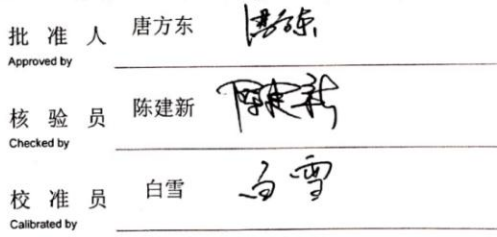 批准人 唐方东 唐方东
Approved by
核验员 陈建新 陈建新
Checked by
校准员 白雪 白雪
Calibrated by